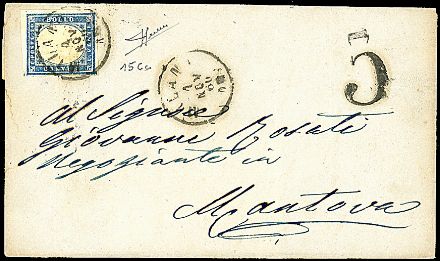 BOLLO
15 Cu
MILANO
4
NOV
60
5
al Signore
Giovanni Rosati
Negoziante in
Mantova